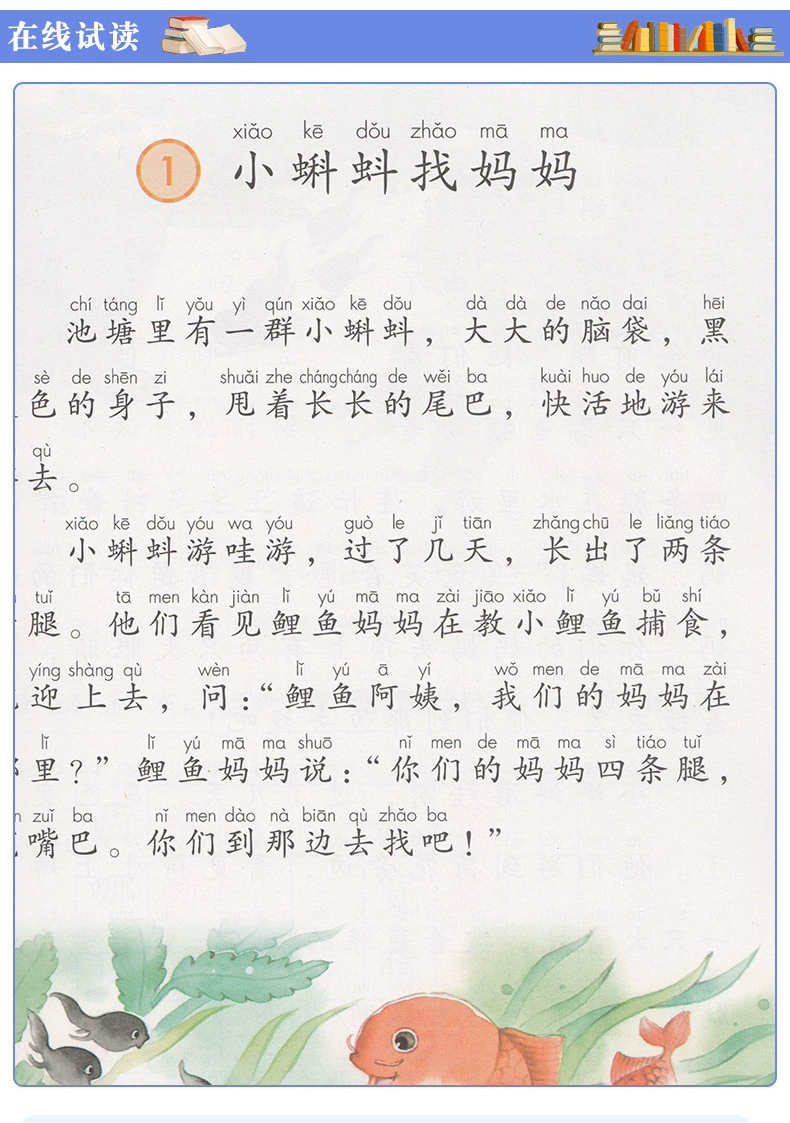 在线试读
xiǎo kē dǒu zhǎo mā ma
1 小蝌蚪找妈妈
chí táng lǐ yǒu yì qún xiǎo kē dǒu dà dà de nǎo dai hēi
池塘里有一群小蝌蚪，大大的脑袋，黑
sè de shēn zi shuǎi zhe cháng cháng de wěi ba kuài huo de yóu lái
色的身子，甩着长长的尾巴，快活地游来
qù
去。
xiǎo kē dǒu yóu wa yóu guò le jǐ tiān zhǎng chū le liǎng tiáo
小蝌蚪游哇游，过了几天，长出了两条
tuǐ tā men kàn jiàn lǐ yú mā ma zài jiāo xiǎo lǐ yú bǔ shí
腿。他们看见鲤鱼妈妈在教小鲤鱼捕食，
yíng shàng qù wèn lǐ yú ā yí wǒ men de mā ma zài
迎上去，问：“鲤鱼阿姨，我们的妈妈在
lǐ lǐ yú mā ma shuō nǐ men de mā ma sì tiáo tuǐ
里？”鲤鱼妈妈说：“你们的妈妈四条腿，
zuǐ ba nǐ men dào nà biān qù zhǎo ba
嘴巴。你们到那边去找吧！”